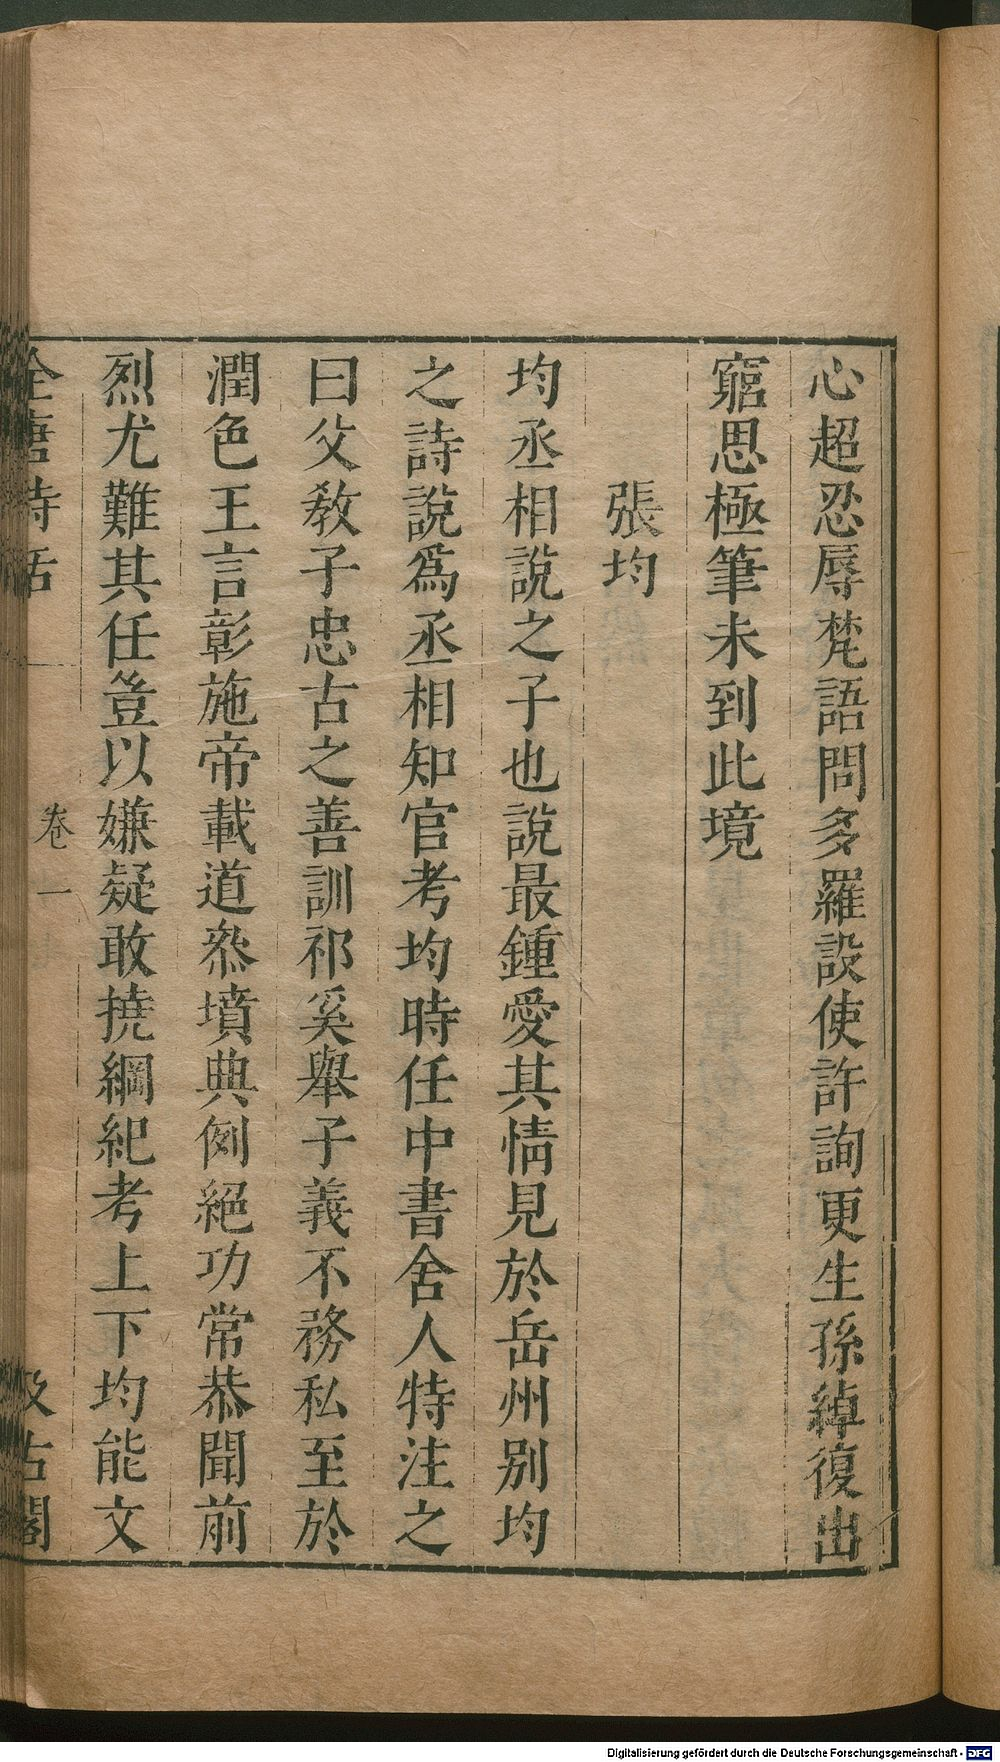 心超忍辱梵語問多羅設使許詢更生孫綽復出
窮思極筆未到此境
張均
均丞相說之子也說最鍾愛其情見於岳州别均
之詩說爲丞相知官考均時任中書舍人特注之
曰父教子忠古之善訓祁奚舉子義不務私至於
潤色王言彰施帝載道叅墳典例絕功常恭聞前
烈尤難其任豈以嫌疑敢撓綱紀考上下均能文
全唐詩話 卷一 汲古閣
Digitalisierung gefördert durch die Deutsche Forschungsgemeinschaft - DFG